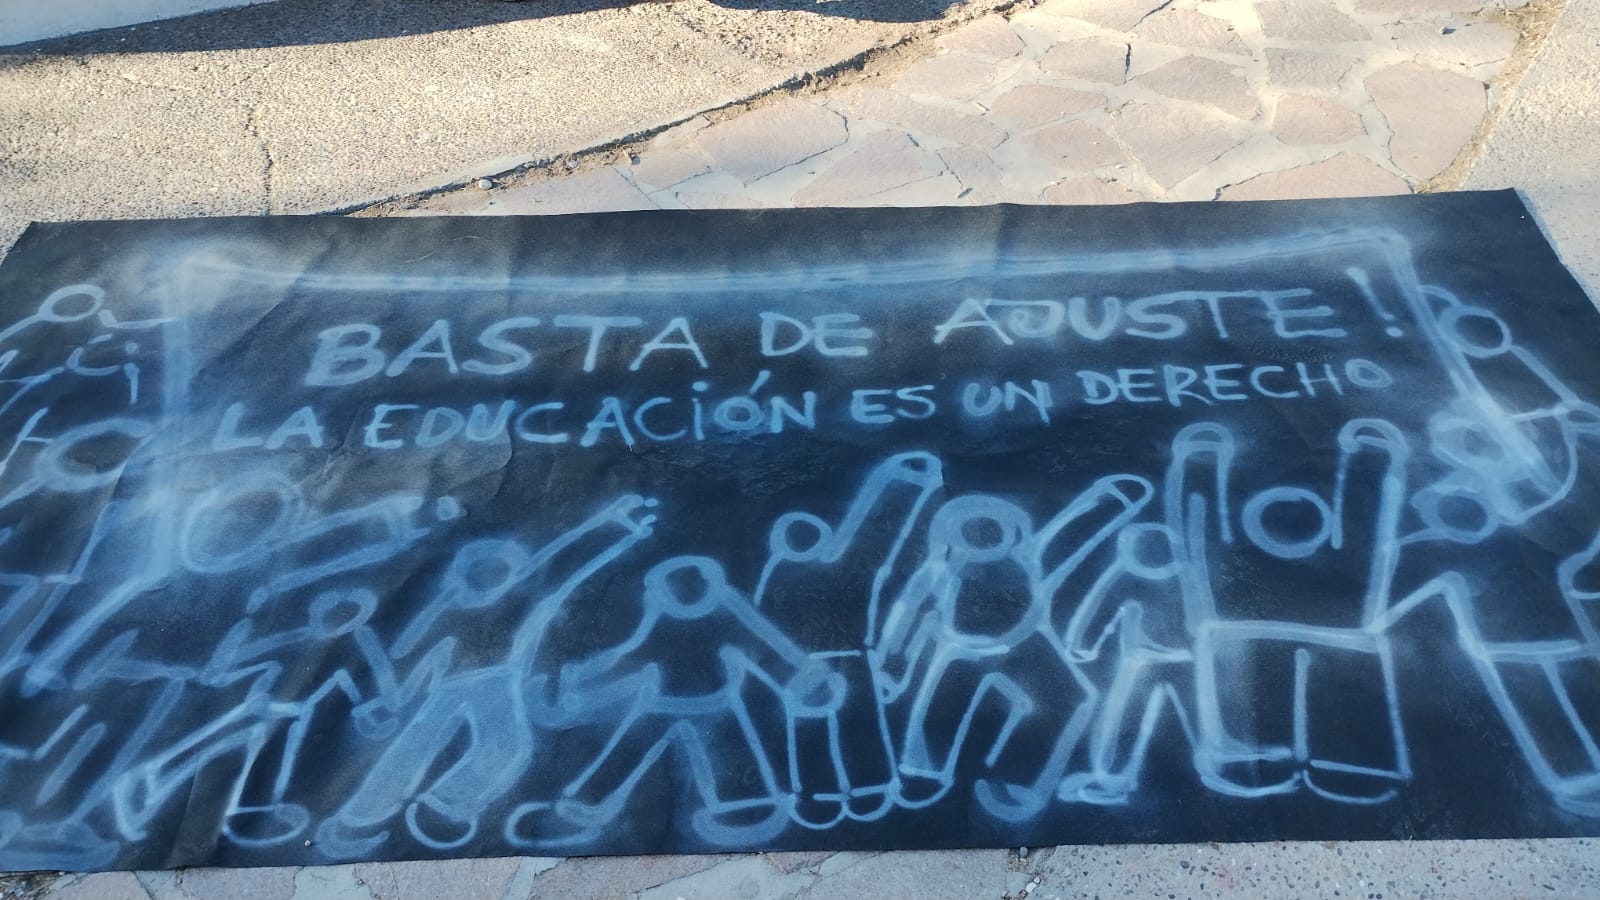 BASTA DE AJUSTE!
LA EDUCACIÓN ES UN DERECHO